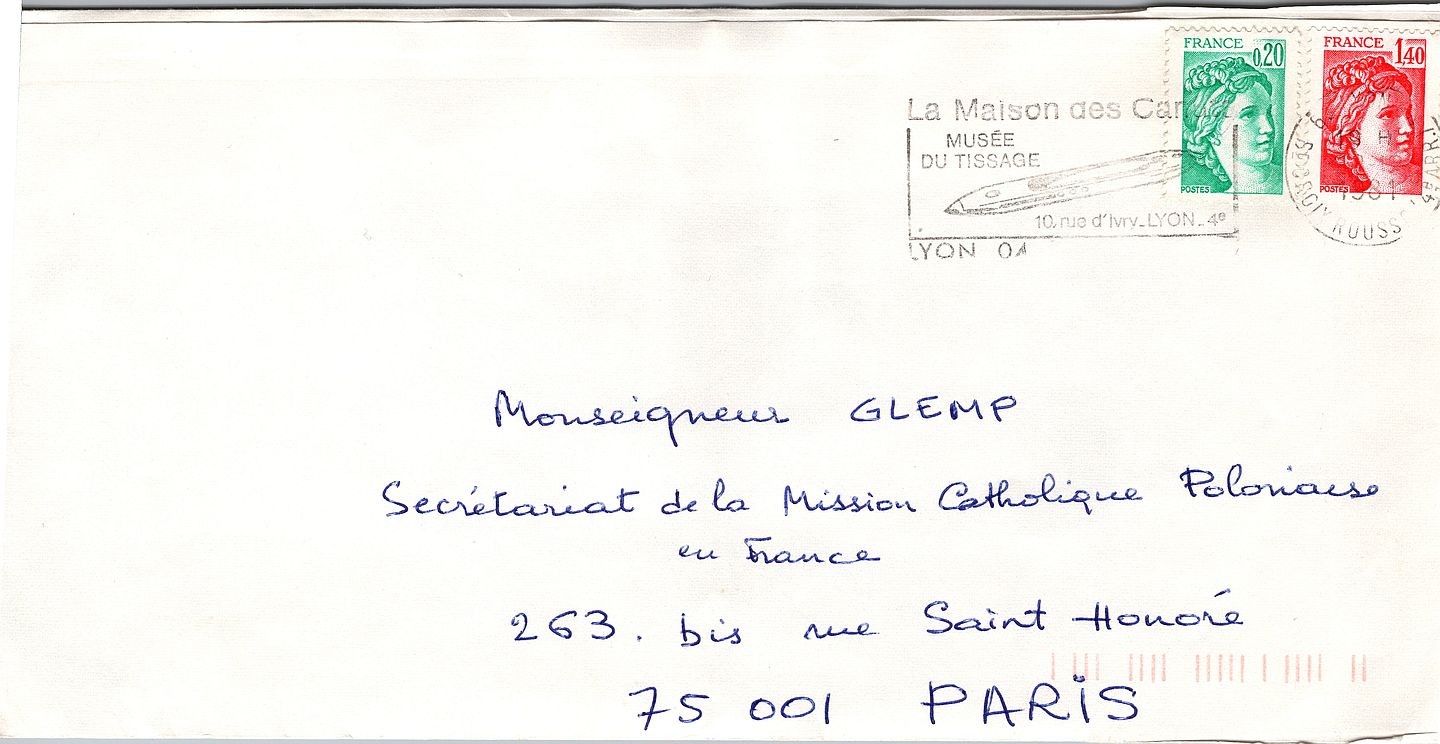 FRANCE 0,20
POSTES
FRANCE 1,40
POSTES
La Maison des Canuts
MUSÉE
DU TISSAGE
10, rue d'Ivry_LYON_4e
LYON 04
1981
Monseigneur GLEMP
Secrétariat de la Mission Catholique Polonaise
en France
263. bis rue Saint Honoré
75 001 PARIS